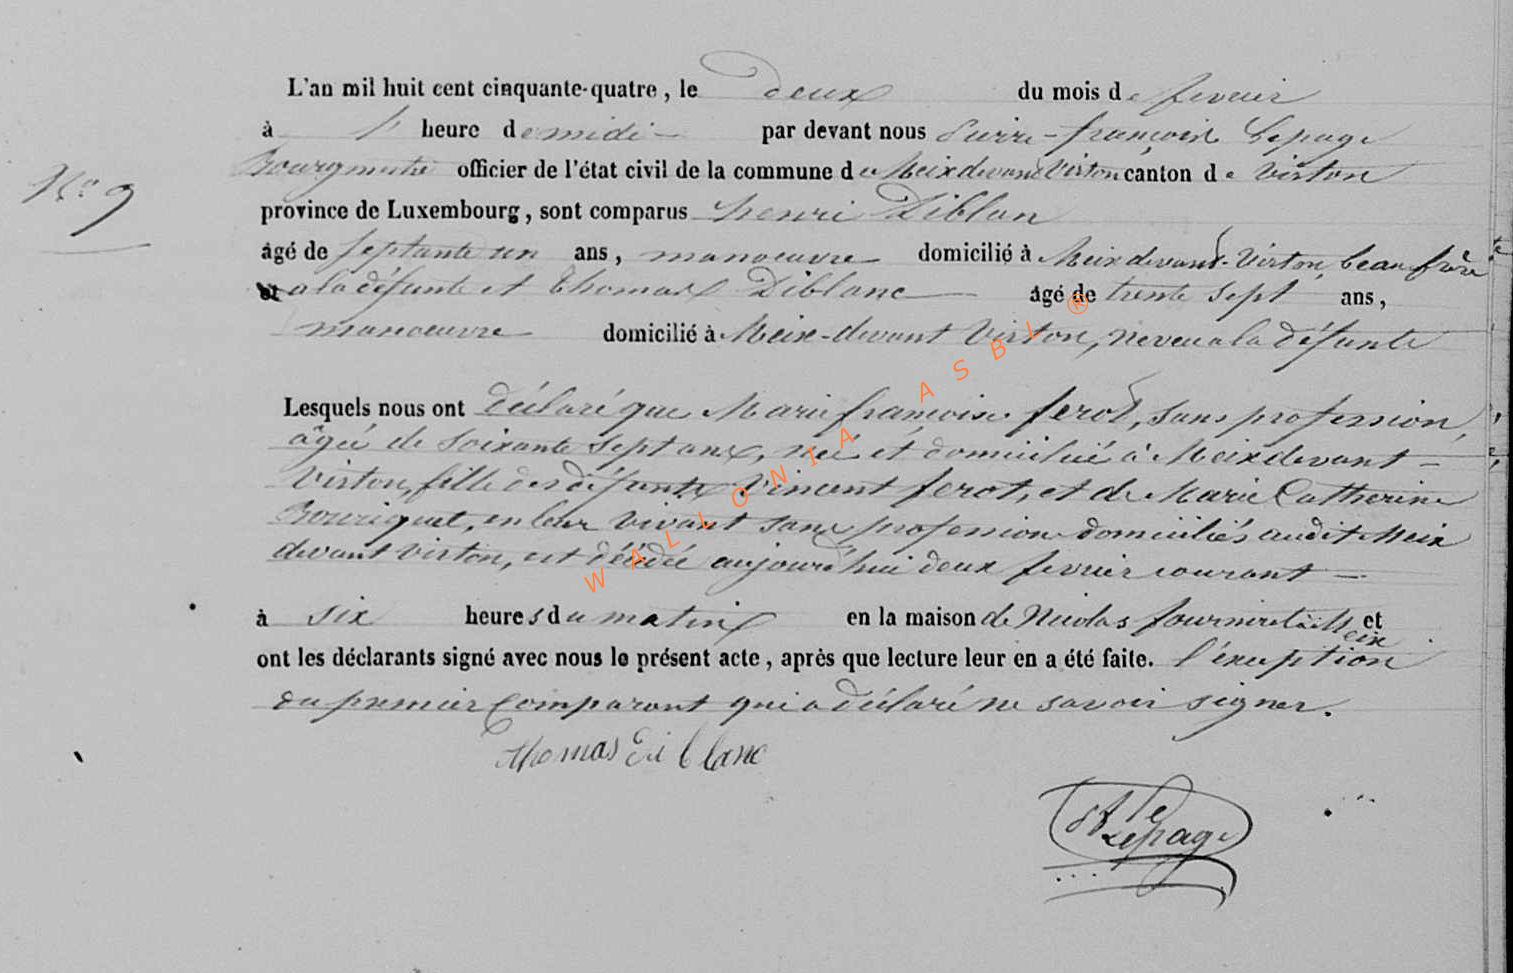 L'an mil huit cent cinquante-quatre, le deux du mois de fevrier
à 1 heure de midi par devant nous Pierre-françois Lepage
Bourgmestre officier de l'état civil de la commune de Meix devant Virton canton de Virton
N.o 9
province de Luxembourg, sont comparus henri Diblan
âgé de septante un ans, manoeuvre domicilié à Meix devant-Virton, beau frère
a la défunte et Thomas Diblanc âgé de trente sept ans,
manoeuvre domicilié à Meix-devant Virton, neveu a la défunte
Lesquels nous ont déclaré que Marie françoise ferot, sans profession,
âgée de soixante sept ans, née et domiciliée à Meix devant-
Virton, fille des défunts Vincent ferot, et de Marie Catherine
Bouriquet, en leur vivant sans profession domiciliés audit Meix
devant Virton, est décédée aujourd'hui deux fevrier courant
à six heures du matin en la maison de Nicolas fourniret à Meix et
ont les déclarants signé avec nous le présent acte, après que lecture leur en a été faite. l'exeption
du premier Comparant qui a déclaré ne savoir signer.
thomas diblanc
Lepage
WALLONIA ASBL ®